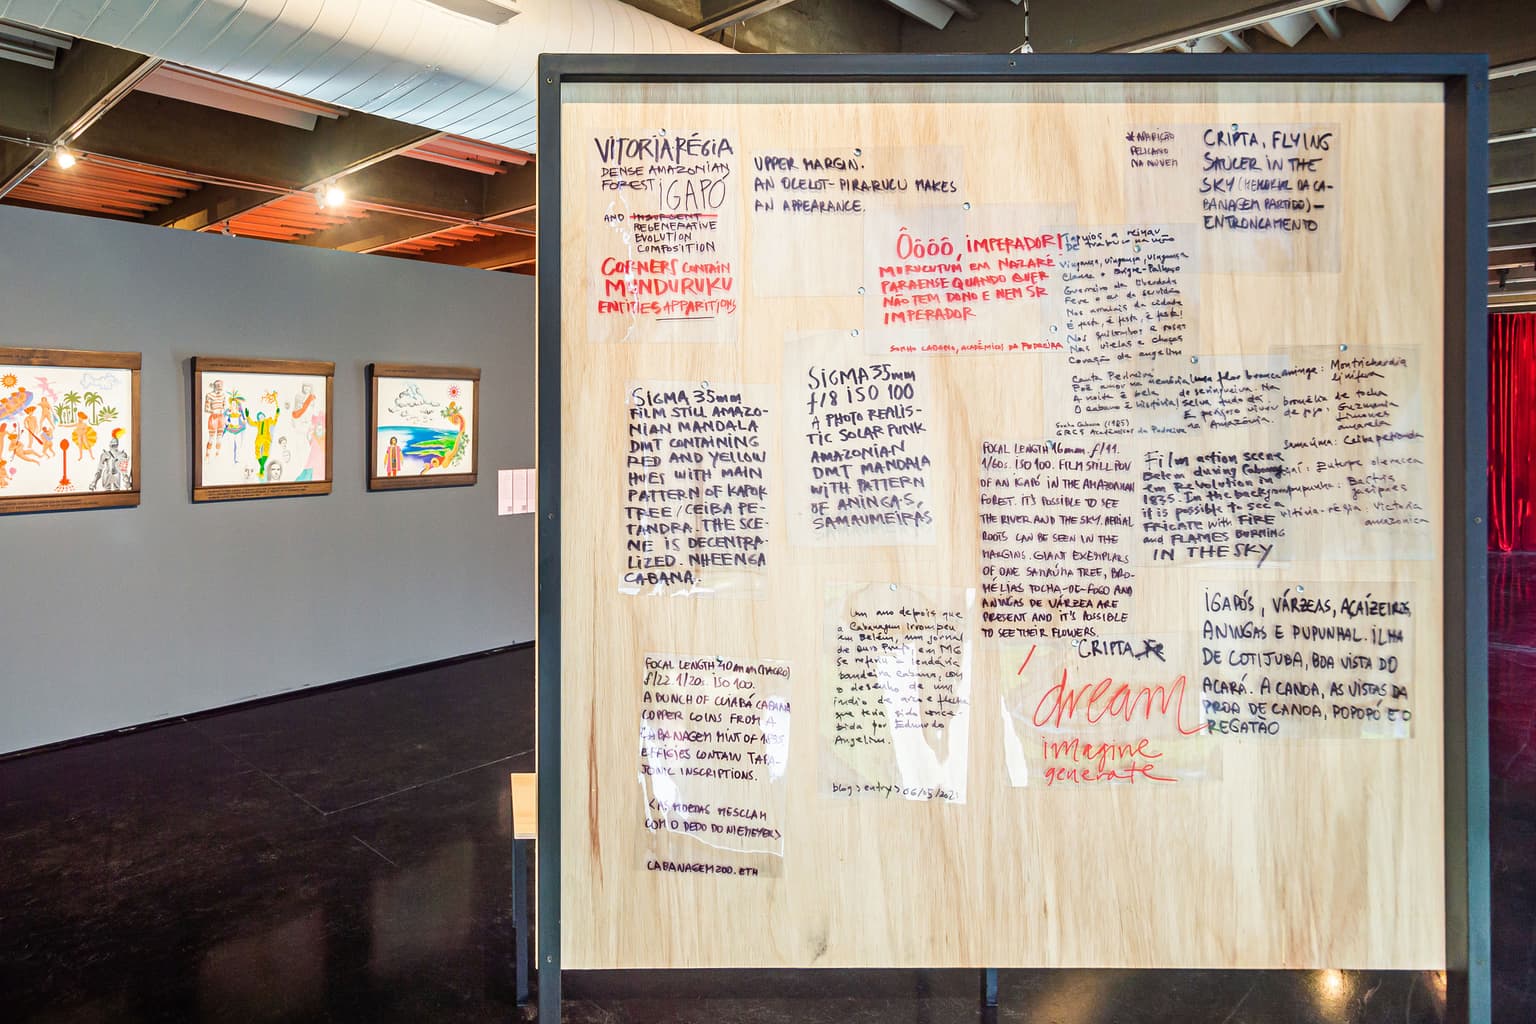 VITORIA RÉGIA
DENSE AMAZONIAN
FOREST IGAPÓ
AND INSURGENT
REGENERATIVE
EVOLUTION
COMPOSITION
CORNERS CONTAIN
MUNDURUKU
ENTITIES APPARITIONS
UPPER MARGIN.
AN OCELOT-PIRARUCU MAKES
AN APPEARANCE.
*APARIÇÃO
PELICANO
NA NUVEM
CRIPTA, FLYING
SAUCER IN THE
SKY (MEMORIAL DA CA-
BANAGEM PARTIDO)—
ENTRONCAMENTO
Ôôôô, IMPERADOR!
MURUCUTUM EM NAZARÉ
PARAENSE QUANDO QUER
NÃO TEM DONO E NEM SR
IMPERADOR
SONHO CABANO, ACADÊMICOS DA PEDREIRA
Tapuios a reinar
Vingança, vingança, vingança
Guerreiro da liberdade
Nos arrabais da cidade
É festa, é festa, é festa!
Nos quilombos e rosas
Nas vielas e choças
Coração de angelim
Canta Pedreira
A noite é bela
O cabano é história
Sonho Cabano (1985)
GRCS Acadêmicos da Pedreira
uma flor branca
de seringueira. Na
selva tudo dá.
E perigo viver
na Amazônia.
aninga: Montrichardia
linifera
bromélia de tocha
de fogo: Guzmania
amarela
Samaúma: Ceiba pentandra
açaí: Euterpe oleracea
pupunha: Bactris
gasipaes
vitória-régia: Victoria
amazonica
SIGMA 35mm
FILM STILL AMAZO-
NIAN MANDALA
DMT CONTAINING
RED AND YELLOW
HUES WITH MAIN
PATTERN OF KAPOK
TREE/CEIBA PE-
TANDRA. THE SCE-
NE IS DECENTRA-
LIZED. NHEENGA
CABANA.
SIGMA 35mm
f/8 ISO 100
A PHOTO REALIS-
TIC SOLAR PUNK
AMAZONIAN
DMT MANDALA
WITH PATTERN
OF ANINGAS,
SAMAUMEIRAS
FOCAL LENGTH 16mm. f/11.
1/60s. ISO 100. FILM STILL POV
OF AN IGAPÓ IN THE AMAZONIAN
FOREST. IT'S POSSIBLE TO SEE
THE RIVER AND THE SKY. AERIAL
ROOTS CAN BE SEEN IN THE
MARGINS. GIANT EXEMPLARS
OF ONE SAMAÚMA TREE, BRO-
MÉLIAS TOCHA-DE-FOGO AND
ANINGAS DE VÁRZEA ARE
PRESENT AND IT'S POSSIBLE
TO SEE THEIR FLOWERS.
Film action scene
Belem during Cabanagem
em Revolution in
1835. In the background
it is possible to see a
FRIGATE with FIRE
and FLAMES BURNING
IN THE SKY
FOCAL LENGTH 40mm (MACRO)
f/22. 1/20s. ISO 100.
A BUNCH OF CUIABÁ CABANA
COPPER COINS FROM A
CABANAGEM MINT OF 1835
EFFIGIES CONTAIN TAPA-
JONIC INSCRIPTIONS.
<AS MOEDAS MESCLAM
COM O DEDO DO NIEMEYER>
CABANAGEMZOO.ETH
Um ano depois que
a Cabanagem irrompeu
em Belém, um jornal
de Ouro Preto, em MG
se referiu à lendária
bandeira cabana, com
o desenho de um
índio de arco e flecha
que teria sido conce-
bida por Eduardo
Angelim.
blog > entry > 06/05/2021
CRIPTA
/dream
imagine
generate
IGAPÓS, VÁRZEAS, AÇAIZEIRX,
ANINGAS E PUPUNHAL. ILHA
DE COTIJUBA, BOA VISTA DO
ACARÁ. A CANOA, AS VISTAS DA
PROA DE CANOA, POPOPÓ E O
REGATÃO